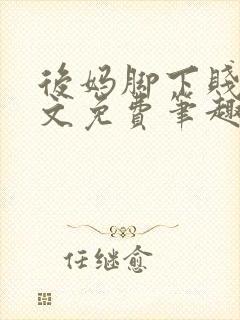 後妈脚下賤
文免費筆趣
任继愈